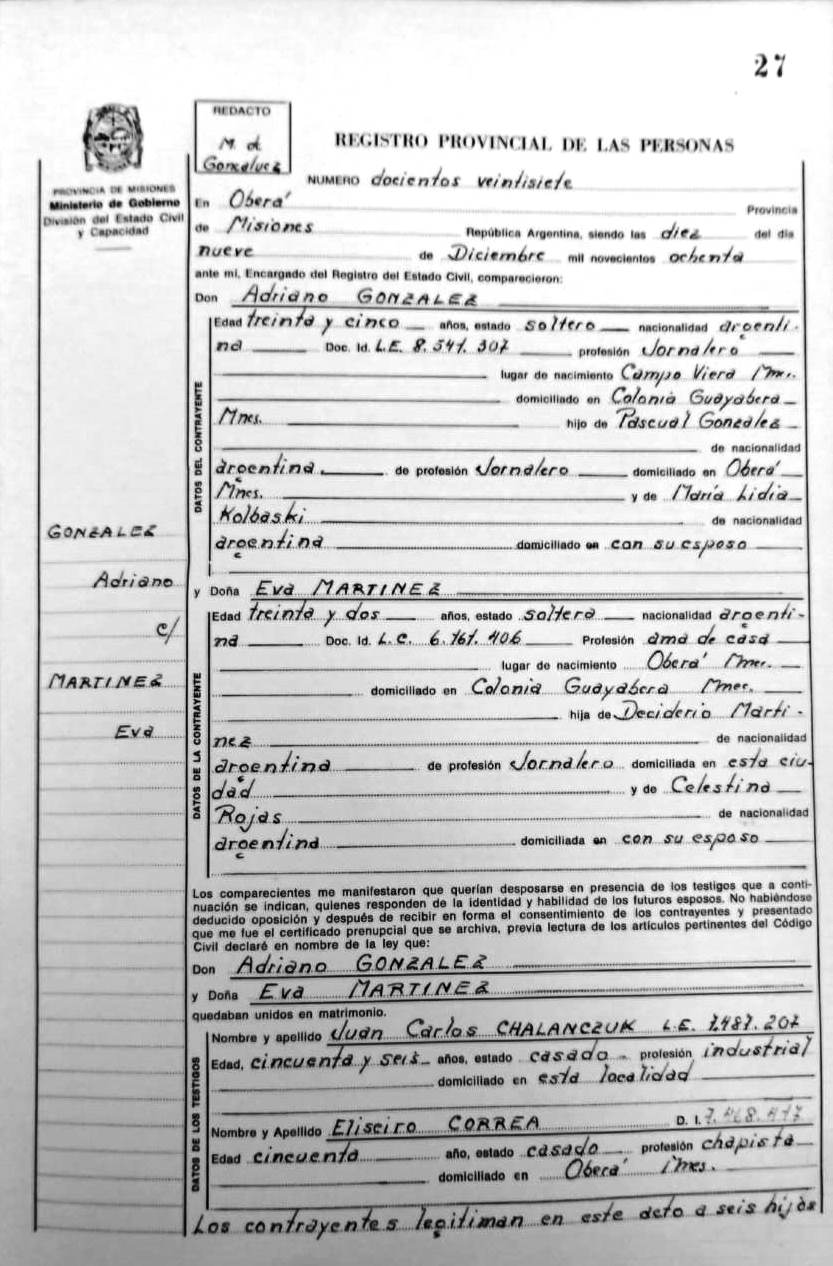 27
REDACTO
M. d.
Goncalvez
REGISTRO PROVINCIAL DE LAS PERSONAS
PROVINCIA DE MISIONES
Ministerio de Gobierno
División del Estado Civil
y Capacidad
NUMERO docientos veintisiete
En Oberá Provincia
de Misiones República Argentina, siendo las diez del día
nueve de Diciembre mil novecientos ochenta
ante mi, Encargado del Registro del Estado Civil, comparecieron:
Don Adriano GONZALEZ
DATOS DEL CONTRAYENTE
Edad treinta y cinco años, estado soltero nacionalidad argenti-
na Doc. Id. L.E. 8.541.307 profesión Jornalero
lugar de nacimiento Campo Viera Mnes.
domiciliado en Colonia Guayabera
Mnes. hijo de Pascual Gonzalez
de nacionalidad
argentina de profesión Jornalero domiciliado en Oberá
Mnes. y de María Lidia
Kolbaski de nacionalidad
argentina domiciliado en con su esposo
GONZALEZ
Adriano
c/
MARTINEZ
Eva
y Doña Eva MARTINEZ
DATOS DE LA CONTRAYENTE
Edad treinta y dos años, estado soltera nacionalidad argenti-
na Doc. Id. L.C. 6.161.406 Profesión ama de casa
lugar de nacimiento Oberá Mnes.
domiciliado en Colonia Guayabera Mnes.
hija de Deciderio Marti-
nez de nacionalidad
argentina de profesión Jornalero domiciliada en esta ciu-
dad y de Celestina
Rojas de nacionalidad
argentina domiciliada en con su esposo
Los comparecientes me manifestaron que querían desposarse en presencia de los testigos que a conti-
nuación se indican, quienes responden de la identidad y habilidad de los futuros esposos. No habiéndose
deducido oposición y después de recibir en forma el consentimiento de los contrayentes y presentado
que me fue el certificado prenupcial que se archiva, previa lectura de los artículos pertinentes del Código
Civil declaré en nombre de la ley que:
Don Adriano GONZALEZ
y Doña Eva MARTINEZ
quedaban unidos en matrimonio.
DATOS DE LOS TESTIGOS
Nombre y apellido Juan Carlos CHALANCZUK L.E. 7.487.207
Edad, cincuenta y seis años, estado casado profesión industrial
domiciliado en esta localidad
Nombre y Apellido Eliseiro CORREA D. I.
Edad cincuenta año, estado casado profesión chapista
domiciliado en Oberá Mnes.
Los contrayentes legitiman en este acto a seis hijos